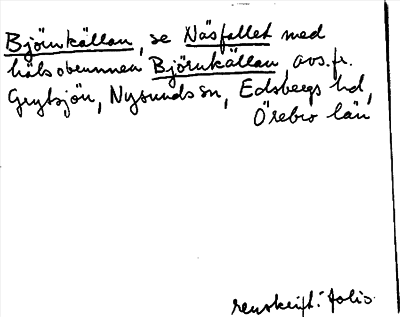 Björnkällan, se Näsfallet med
hälsobrunnen Björnkällan avs. fr.
Grytsjön, Nysunds sn, Edsbergs hd,
Örebro län
renskrift: folio